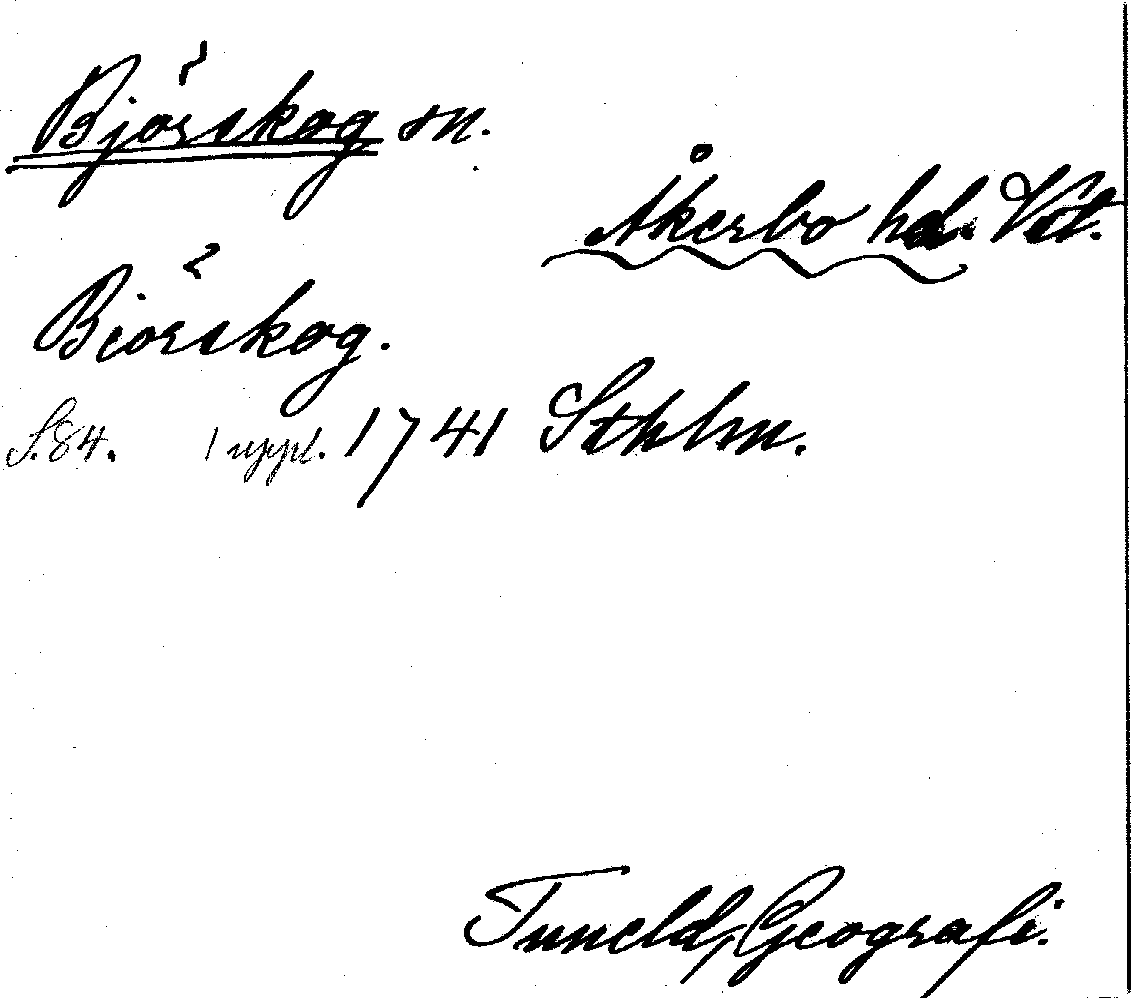 Björskog sn.
Åkerbo hd. Vstl.
Biörskog.
S. 84. 1 uppl. 1741 Sthlm.
Tuneld, Geografi.